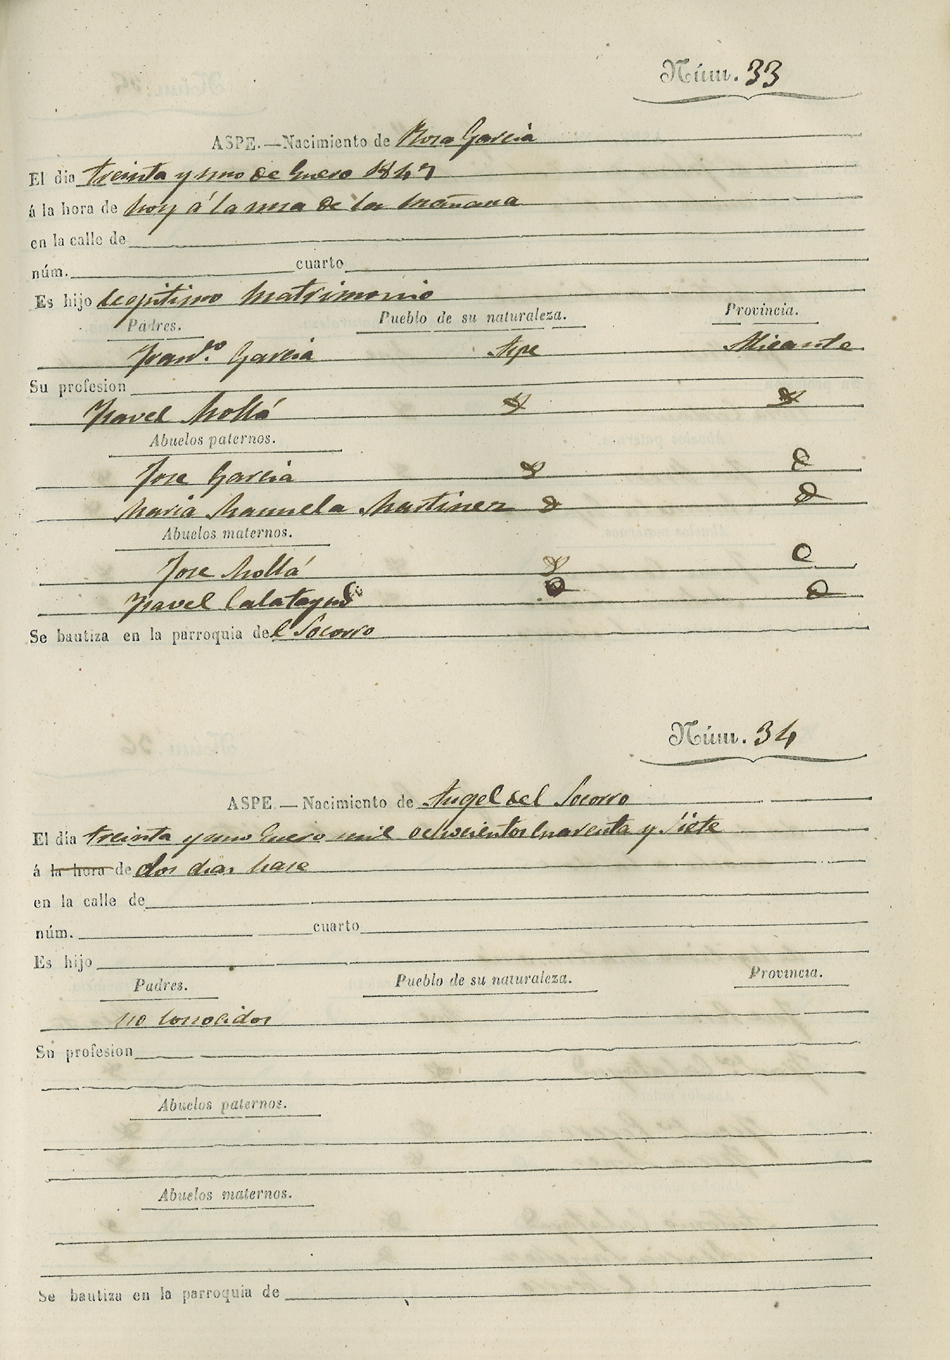 Núm. 33
ASPE.—Nacimiento de Rosa Garcia
El dia treinta y uno de Enero 1847
á la hora de hoy á la una de la mañana
en la calle de
núm. cuarto
Es hijo legitimo Matrimonio
Padres. Pueblo de su naturaleza. Provincia.
Garcia Aspe Alicante
Su profesion
Ysavel Mollá
Abuelos paternos.
Jose Garcia
Maria Manuela Martinez
Abuelos maternos.
Jose Mollá
Ysavel Calatayud
Se bautiza en la parroquia del Socorro
Núm. 34
ASPE.—Nacimiento de Angel del Socorro
El día treinta y uno Enero mil ochocientos Cuarenta y Siete
á la hora de dos dias hase
en la calle de
núm. cuarto
Es hijo
Padres. Pueblo de su naturaleza. Provincia.
no conocidos
Su profesion
Abuelos paternos.
Abuelos maternos.
Se bautiza en la parroquia de